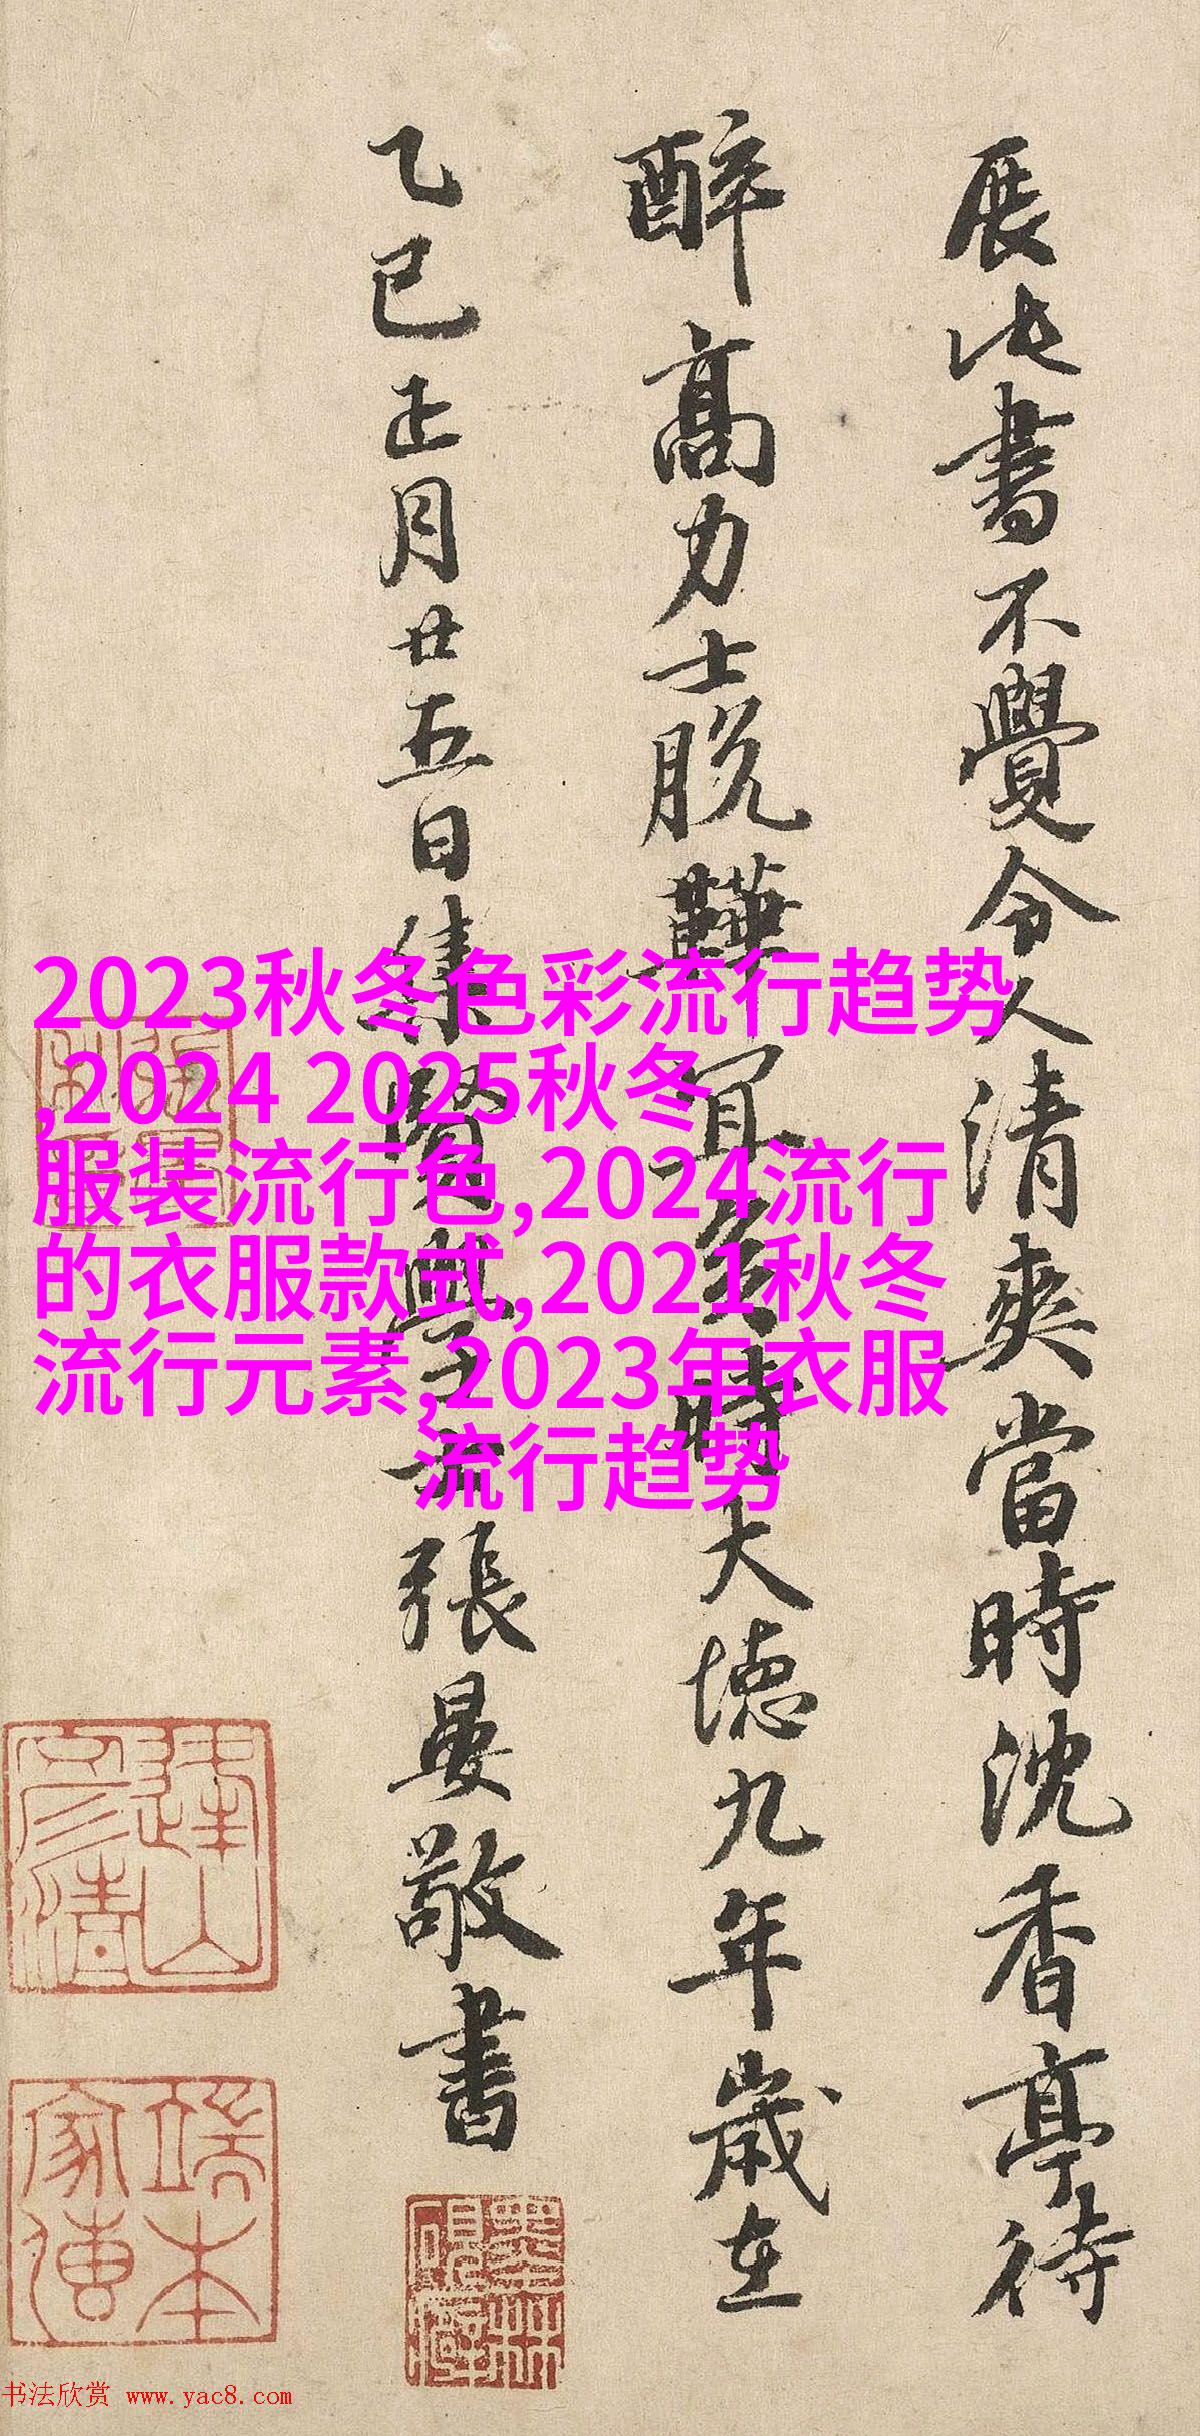 展此書不覺令人清爽當時沈香亭待
醉高力士脱鞾宜矣時大德九年歲在
乙巳正月廿五日集賢學士張晏敬書
2023秋冬色彩流行趋势
,2024 2025秋冬
服装流行色,2024流行
的衣服款式,2021秋冬
流行元素,2023年衣服
流行趋势
端本
家傳
书法欣赏 www.yac8.com